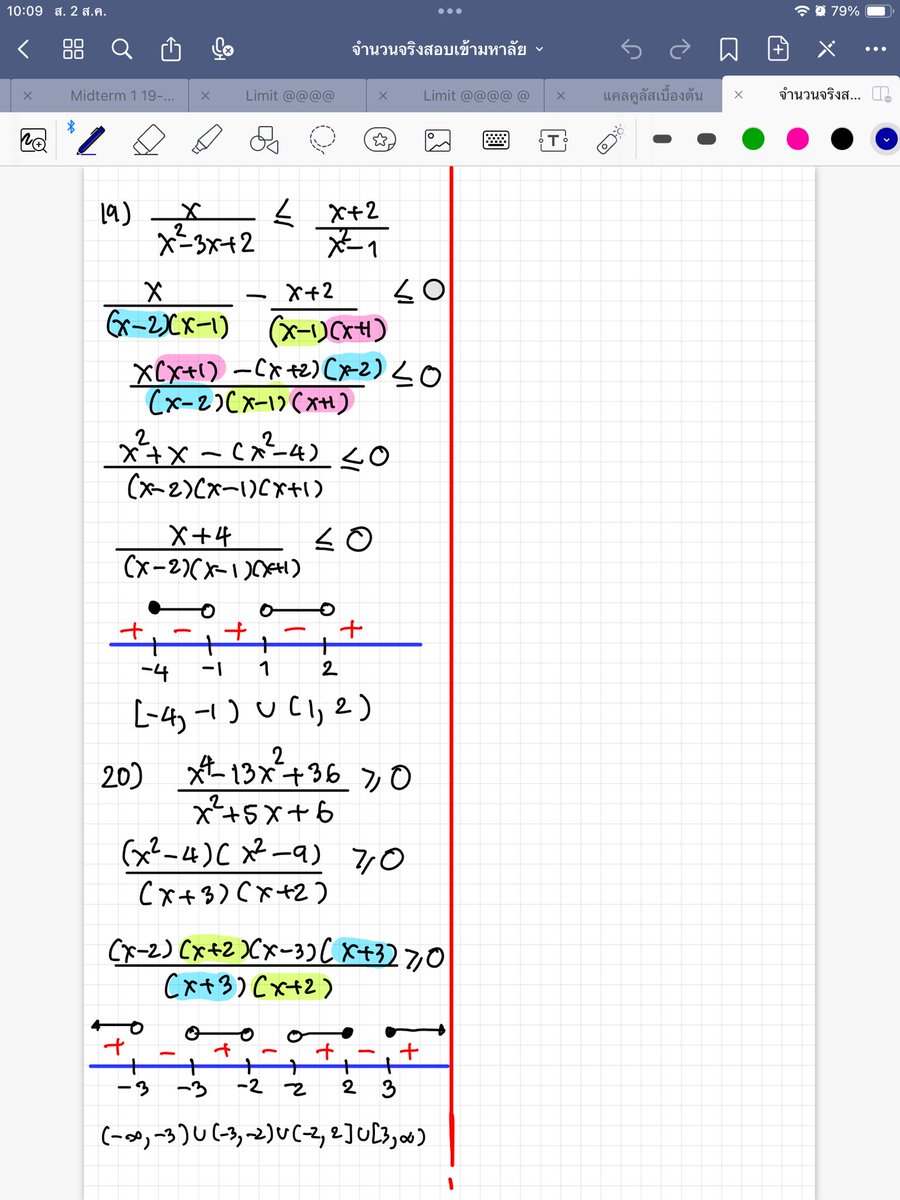 10:09 ส. 2 ส.ค. 79%
จำนวนจริงสอบเข้ามหาลัย
Midterm 1 19-... Limit @@@@ Limit @@@@ @ แคลคูลัสเบื้องต้น จำนวนจริงส...
19) x/(x²-3x+2) ≤ (x+2)/(x²-1)
x/((x-2)(x-1)) - (x+2)/((x-1)(x+1)) ≤ 0
(x(x+1) - (x+2)(x-2))/((x-2)(x-1)(x+1)) ≤ 0
(x²+x - (x²-4))/((x-2)(x-1)(x+1)) ≤ 0
(x+4)/((x-2)(x-1)(x+1)) ≤ 0
+ - + - +
-4 -1 1 2
[-4, -1) ∪ (1, 2)
20) (x⁴-13x²+36)/(x²+5x+6) ≥ 0
((x²-4)(x²-9))/((x+3)(x+2)) ≥ 0
((x-2)(x+2)(x-3)(x+3))/((x+3)(x+2)) ≥ 0
+ - + - + - +
-3 -3 -2 -2 2 3
(-∞, -3) ∪ (-3, -2) ∪ (-2, 2] ∪ [3, ∞)